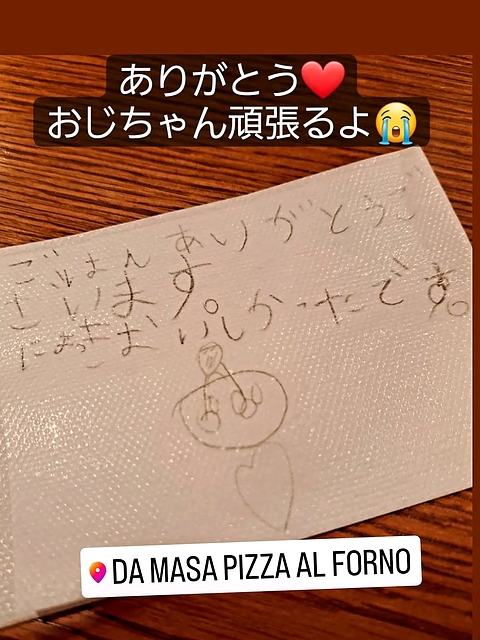 ありがとう❤️
おじちゃん頑張るよ😭
ごはん ありがとうご
ざいます。
おいしかったです。
DA MASA PIZZA AL FORNO